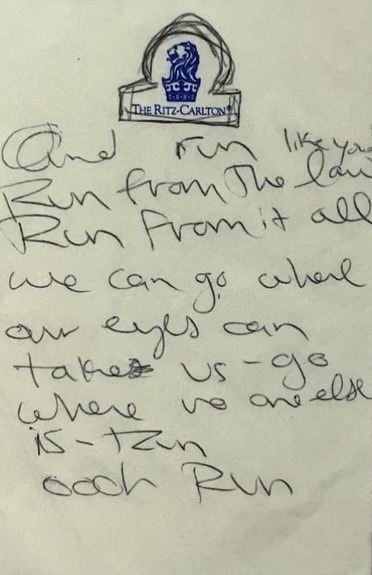 THE RITZ-CARLTON®
And run like you
Run from the law
Run from it all
we can go where
our eyes can
take us - go
where no one else
is - run
oooh Run